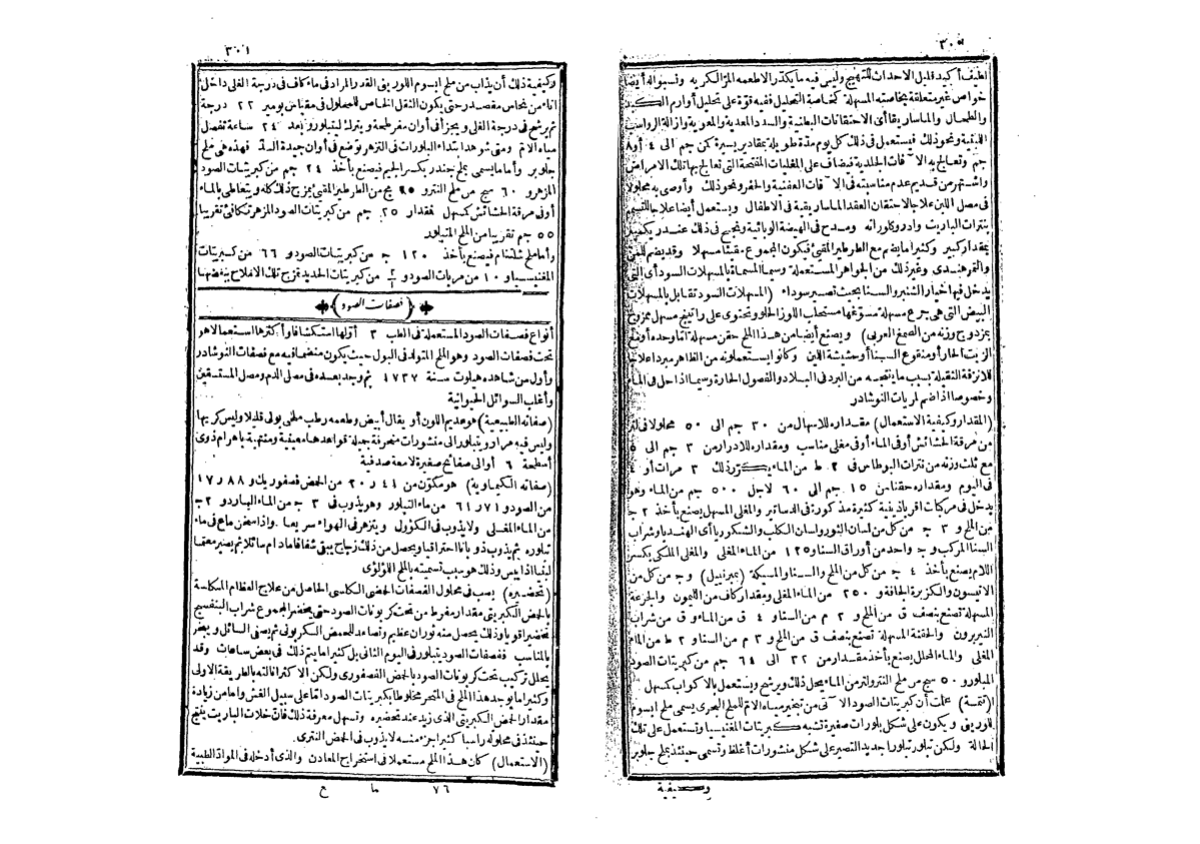 ٣٠٥
لطيف أكيد قليل الاحداث للتهيج وليس فيه ما يكدر الاطعمه المر الكريه وتسبوا له أيضا
خواص غير متعلقة بخاصته المسهلة كخاصة التحليل ففيه قوة على تحليل أورام الكبد
والطحال والماساريقا أى الاحتقانات البطنية والسدد المعدية والمعوية وازالة الرواسب
اللبنية ونحو ذلك فيستعمل فى ذلك كل يوم مدة طويلة بمقادير يسيرة كمن جم الى ٤ أو ٨
جم وتعالج به الآفات الجلدية فيضاف على المغليات المفتحة التى تعالج بها تلك الامراض
واشتهر من قديم عدم مناسبته فى الآفات العفنية والحفر ونحو ذلك وأوصى به محلولا
فى مصل اللبن علاجا لاحتقان العقد الماساريقية فى الاطفال ويستعمل أيضا علاجا للتسمم
بنترات الباريت وادروكلوراته ومدح فى الهيضة الوبائية ونجح فى ذلك عند
بمقدار كبير وكثيرا ما يضم مع الطرطير المقئ فيكون المجموع مقيئا مسهلا وقد يضم للمن
والتمر هندى وغير ذلك من الجواهر المستعملة وسيما المسماة بالمسهلات السود أى التى
يدخل فيها خيار الشنبر والسنا بحيث تصير سوداء (المسهلات السود تقابل بالمسهلات
البيض التى هى جرع مسهلة مسوغها مستحلب اللوز الحلو وتحتوى على راتينج مسهل ممزوج
بمزدوج وزنه من الصمغ العربى) ويصنع أيضا من هذا الملح حقن مسهلة اما وحده أو مع
الزيت الحار أو منقوع السنا أو حشيشة اللبن وكانوا يستعملونه من الظاهر مبردا علاجا
للانزفة الثقيلة بسبب ما ينتجه من البرد فى البلاد والفصول الحارة وسيما اذا حل فى الماء
وخصوصا اذا ضم لمريات النوشادر
(المقدار وكيفية الاستعمال) مقداره للاسهال من ٣٠ جم الى ٥٠ محلولا فى لتر
من مرقة الحشائش أو فى الماء أو فى مغلى مناسب ومقداره للادرار من ٣ جم الى ٥
مع ثلث وزنه من نترات البوطاس فى ٢ ط من الماء يكرر ذلك ٣ مرات أو ٤
فى اليوم ومقداره حقنا من ١٥ جم الى ٦٠ لاجل ٥٠٠ جم من الماء وهو
يدخل فى مركبات اقرباذينية كثيرة مذكورة فى الدساتير والمغلى المسهل يصنع بأخذ ٢ جـ
من الملح و ٣ جـ من كل من لسان الثور ولسان الكلب والشكوريا أى الهنديا وشراب
السنا المركب و جـ واحد من أوراق السنا و ١٢٥ من الماء المغلى والمغلى الملكى بكسر
اللام يصنع بأخذ ٤ جـ من كل من الملح والسنا والمسيكة (بمبرنيل) و جـ من كل من
الانيسون والكزبرة الجافة و ٢٥٠ من الماء المغلى ومقدار كاف من الليمون والجرعة
المسهلة تصنع بنصف ق من الملح و ٢ م من السنا و ٤ ق من الماء و ق من شراب
النبربرون والحقنة المسهلة تصنع بنصف ق من الملح و ٣ م من السنا و ٢ ط من الماء
المغلى والماء المحلل يصنع بأخذ مقدار من ٣٢ الى ٦٤ جم من كبريتات الصود
المبلور و ٥٠ سج من ملح النترو لتر من الماء يحل ذلك ويرشح ويستعمل بالاكواب كمسهل
(تتمة) علمت أن كبريتات الصود الآتى من تبخير مياه الام للملح البحرى يسمى ملح ابسوم
للورينى ويكون على شكل بلورات صغيرة تشبه كبريتات المغنيسيا وتستعمل على تلك
الحالة ولكن تبلور تبلورا جديدا لتصير على شكل منشورات أغلظ وتسمى حينئذ بملح جلوبر
وكيفية
٣٠١
وكيفية ذلك أن يذاب من ملح ابسوم اللورينى القدر المراد فى ماء كاف فى درجة الغلى داخل
اناء من نحاس مقصدر حتى يكون الثقل الخاص للمحلول فى مقياس بوميه ٢٢ درجة
ثم يرشح فى درجة الغلى ويجزأ فى أوان مفرطحة ويترك ليتبلور وبعد ٢٤ ساعة تفصل
مياه الام ومتى شوهد ابتداء البلورات فى التزهر توضع فى أوان جيدة السد فهذه هى ملح
جلوبر وأما ما يسمى بملح جندر بكسر الجيم فيصنع بأخذ ٢٤ جم من كبريتات الصود
المزهر و ٦٠ سج من ملح النترو ٢٥ مج من الطرطير المقئ يمزج ذلك كله ويتعاطى بالماء
أو فى مرقة الحشائش كمسهل فمقدار ٢٥ جم من كبريتات الصود المزهر تكافئ تقريبا
٥٥ جم تقريبا من الملح المتبلور
وأما ملح شلنام فيصنع بأخذ ١٢٠ جـ من كبريتات الصود و ٦٦ من كبريتات
المغنيسيا و ١٠ من مريات الصود و ٢/١ من كبريتات الحديد تمزج تلك الاملاح ببعضها
(فصفات الصود)
أنواع فصفات الصود المستعملة فى الطب ٣ أولها استكشافا وأكثرها استعمالا هو
تحت فصفات الصود وهو الملح المتولد فى البول حيث يكون منضما فيه مع فصفات النوشادر
وأول من شاهده هيلوت سنة ١٧٣٧ ثم وجد بعده فى مصل الدم ومصل المستسقين
وأغلب السوائل الحيوانية
(صفاته الطبيعية) هو عديم اللون أو يقال أبيض وطعمه رطب ملحى بولى قليلا وليس كريها
وليس فيه مرار ويتبلور الى منشورات منحرفة جميلة قواعدها معينية ومنتهية باهرام ذوى
أسطحة ٦ أو الى صفائح صغيرة لامعة صدفية
(صفاته الكيماوية) هو مكون من ٤١ ر ٢٠ من الحمض فصفوريك و ٨٨ ر ١٧
من الصود و ٧١ ر ٦١ من ماء التبلور وهو يذوب فى ٣ جـ من الماء البارد و ٢ جـ
من الماء المغلى ولا يذوب فى الكؤول ويتزهر فى الهواء سريعا واذا سخن ماع فى ماء
تبلوره ثم يذوب ذوبانا احتراقيا ويحصل من ذلك زجاج يبقى شفافا مادام سائلا ثم يصير معتما
لبنيا اذا يبس وذلك هو سبب تسميته بالملح اللؤلؤى
(تحضيره) يصب فى محلول الفصفات الحمضى الكلسى الحاصل من علاج العظام المكلسة
بالحمض الكبريتى مقدار مفرط من تحت كربونات الصود حتى يخضر المجموع شراب البنفسج
تخضيرا قويا وذلك يحصل منه ثوران عظيم وتصاعد للحمض الكربونى ثم يصفى السائل ويبخر
بالمناسب ففصفات الصود يتبلور فى اليوم الثانى بل كثيرا ما يتم ذلك فى بعض ساعات وقد
يحلل تركيب تحت كربونات الصود بالحمض الفصفورى ولكن الاكثر انالته بالطريقة الاولى
وكثيرا ما يوجد هذا الملح فى المتجر مخلوطا بكبريتات الصود اما على سبيل الغش واما من زيادة
مقدار الحمض الكبريتى الذى زيد عند تحضيره وتسهل معرفة ذلك فان خلات الباريت ينتج
حينئذ فى محلوله راسبا كثير اجزء منه لا يذوب فى الحمض النترى
(الاستعمال) كان هذا الملح مستعملا فى استخراج المعادن والذى أدخله فى المواد الطبية
٧٦ ما ح